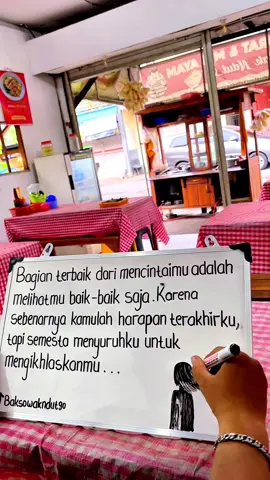 MAYA
Bagian terbaik dari mencintaimu adalah
melihatmu baik-baik saja. Karena
sebenarnya kamulah harapan terakhirku,
tapi semesta menyuruhku untuk
mengikhlaskanmu...
Baksowakndut90